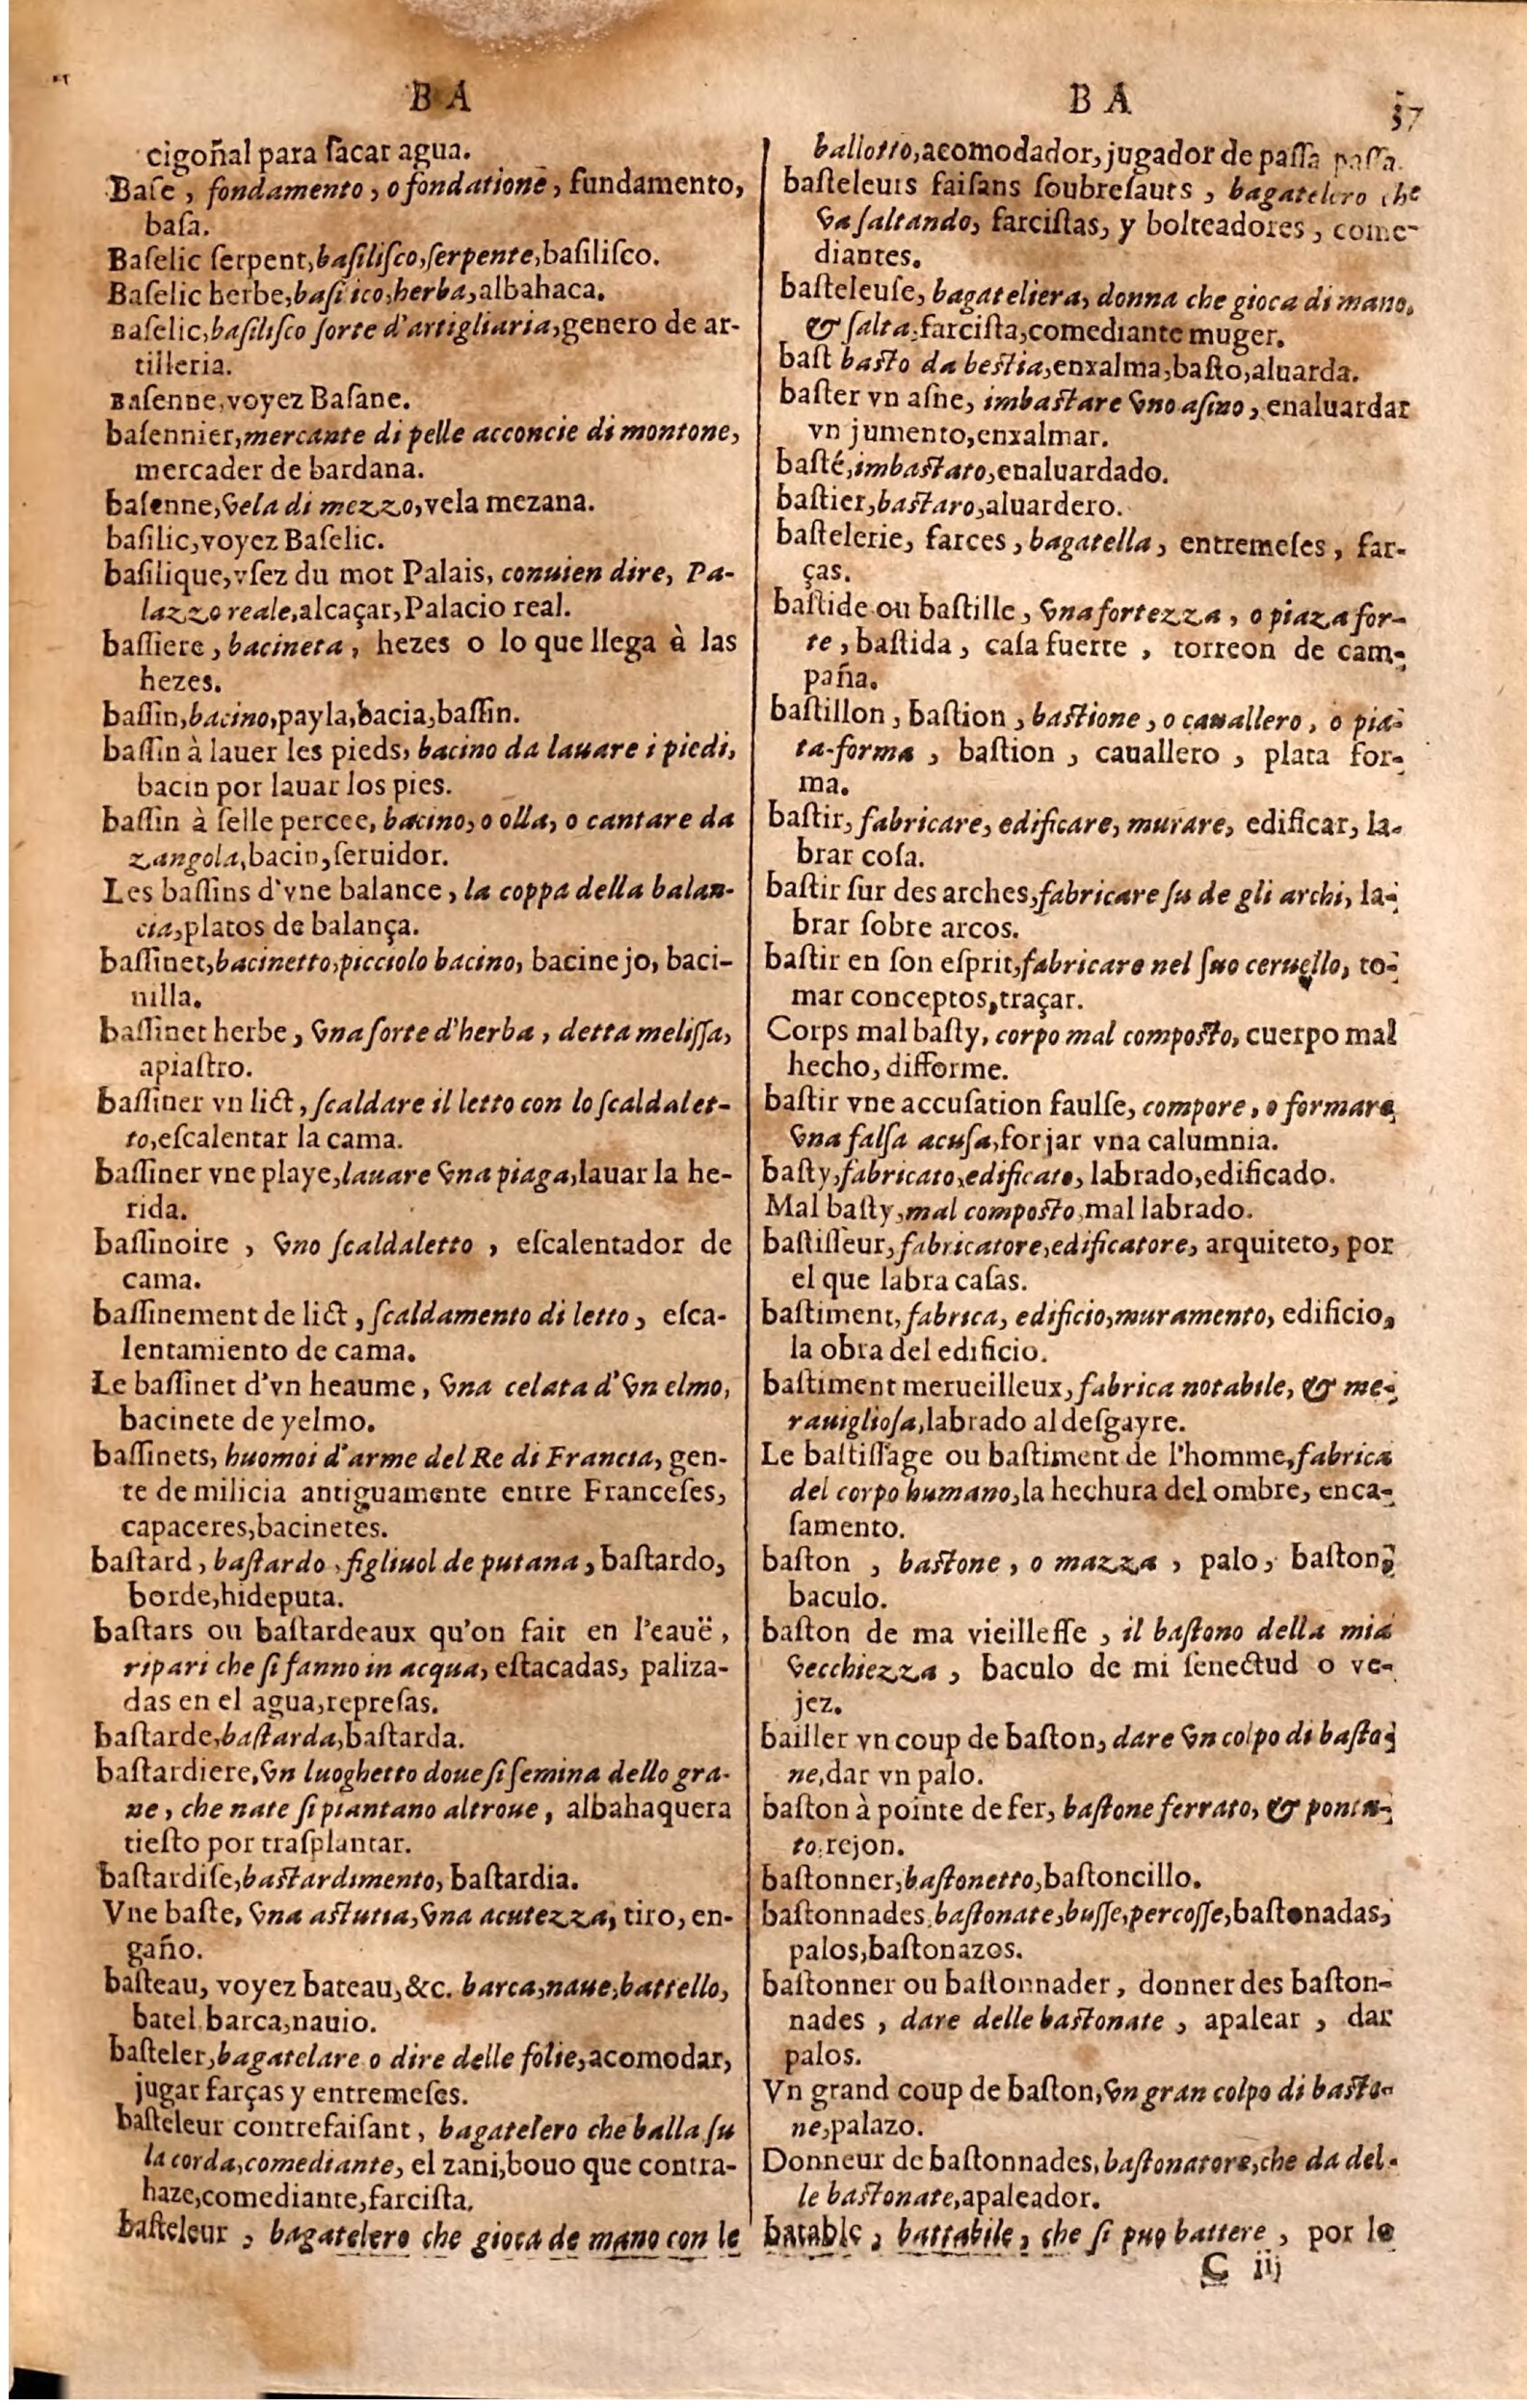 B A
cigoñal para ſacar agua.
Baſe, fondamento, o fondatione, fundamento,
baſa.
Baſelic ſerpent, baſiliſco, ſerpente, baſiliſco.
Baſelic herbe, baſi ico, herba, albahaca.
Baſelic, baſiliſco ſorte d'artigliaria, genero de ar-
tilleria.
Baſenne, voyez Baſane.
baſennier, mercante di pelle acconcie di montone,
mercader de bardana.
baſenne, vela di mezzo, vela mezana.
baſilic, voyez Baſelic.
baſilique, vſez du mot Palais, conuien dire, Pa-
lazzo reale, alcaçar, Palacio real.
baſſiere, bacineta, hezes o lo que llega à las
hezes.
baſſin, bacino, payla, bacia, baſſin.
baſſin à lauer les pieds, bacino da lauare i piedi,
bacin por lauar los pies.
baſſin à ſelle percee, bacino, o olla, o cantare da
zangola, bacin, ſeruidor.
Les baſſins d'vne balance, la coppa della balan-
cia, platos de balança.
baſſinet, bacinetto, picciolo bacino, bacinejo, baci-
nilla.
baſſinet herbe, vna ſorte d'herba, detta meliſſa,
apiaſtro.
baſſiner vn lict, ſcaldare il letto con lo ſcaldalet-
to, eſcalentar la cama.
baſſiner vne playe, lauare vna piaga, lauar la he-
rida.
baſſinoire, vno ſcaldaletto, eſcalentador de
cama.
baſſinement de lict, ſcaldamento di letto, eſca-
lentamiento de cama.
Le baſſinet d'vn heaume, vna celata d'vn elmo,
bacinete de yelmo.
baſſinets, huomoi d'arme del Re di Francia, gen-
te de milicia antiguamente entre Franceſes,
capaceres, bacinetes.
baſtard, baſtardo, figliuol de putana, baſtardo,
borde, hideputa.
baſtars ou baſtardeaux qu'on fait en l'eauë,
ripari che ſi fanno in acqua, eſtacadas, paliza-
das en el agua, repreſas.
baſtarde, baſtarda, baſtarda.
baſtardiere, vn luoghetto doue ſi ſemina dello gra-
ne, che nate ſi piantano altroue, albahaquera
tieſto por traſplantar.
baſtardiſe, baſtardimento, baſtardia.
Vne baſte, vna aſtutia, vna acutezza, tiro, en-
gaño.
baſteau, voyez bateau, &c. barca, naue, battello,
batel, barca, nauio.
baſteler, bagatelare o dire delle folie, acomodar,
jugar farças y entremeſes.
baſteleur contrefaiſant, bagatelero che balla ſu
la corda, comediante, el zani, bouo que contra-
haze, comediante, farciſta.
baſteleur, bagatelero che gioca de mano con le
B A
37
ballotto, acomodador, jugador de paſſa paſſa.
baſteleurs faiſans ſoubreſauts, bagatelero che
va ſaltando, farciſtas, y bolteadores, come-
diantes.
baſteleuſe, bagateliera, donna che gioca di mano,
& ſalta, farciſta, comediante muger.
baſt baſto da beſtia, enxalma, baſto, aluarda.
baſter vn aſne, imbaſtare vno aſino, enaluardar
vn jumento, enxalmar.
baſté, imbaſtato, enaluardado.
baſtier, baſtaro, aluardero.
baſtelerie, farces, bagatella, entremeſes, far-
ças.
baſtide ou baſtille, vna fortezza, o piaza for-
te, baſtida, caſa fuerte, torreon de cam-
paña.
baſtillon, baſtion, baſtione, o cauallero, o pia-
ta-forma, baſtion, cauallero, plata for-
ma.
baſtir, fabricare, edificare, murare, edificar, la-
brar coſa.
baſtir ſur des arches, fabricare ſu de gli archi, la-
brar ſobre arcos.
baſtir en ſon eſprit, fabricare nel ſuo ceruello, to-
mar conceptos, traçar.
Corps mal baſty, corpo mal compoſto, cuerpo mal
hecho, difforme.
baſtir vne accuſation faulſe, compore, o formare
vna falſa acuſa, forjar vna calumnia.
baſty, fabricato, edificato, labrado, edificado.
Mal baſty, mal compoſto, mal labrado.
baſtiſſeur, fabricatore, edificatore, arquiteto, por
el que labra caſas.
baſtiment, fabrica, edificio, muramento, edificio,
la obra del edificio.
baſtiment merueilleux, fabrica notabile, & me-
rauiglioſa, labrado al deſgayre.
Le baſtiſſage ou baſtiment de l'homme, fabrica
del corpo humano, la hechura del ombre, enca-
ſamento.
baſton, baſtone, o mazza, palo, baſton,
baculo.
baſton de ma vieilleſſe, il baſtono della mia
vecchiezza, baculo de mi ſenectud o ve-
jez.
bailler vn coup de baſton, dare vn colpo di baſto-
ne, dar vn palo.
baſton à pointe de fer, baſtone ferrato, & ponta-
to, rejon.
baſtonner, baſtonetto, baſtoncillo.
baſtonnades, baſtonate, buſſe, percoſſe, baſtonadas,
palos, baſtonazos.
baſtonner ou baſtonnader, donner des baſton-
nades, dare delle baſtonate, apalear, dar
palos.
Vn grand coup de baſton, vn gran colpo di baſto-
ne, palazo.
Donneur de baſtonnades, baſtonatore, che da del-
le baſtonate, apaleador.
batable, battabile, che ſi puo battere, por lo
C iij